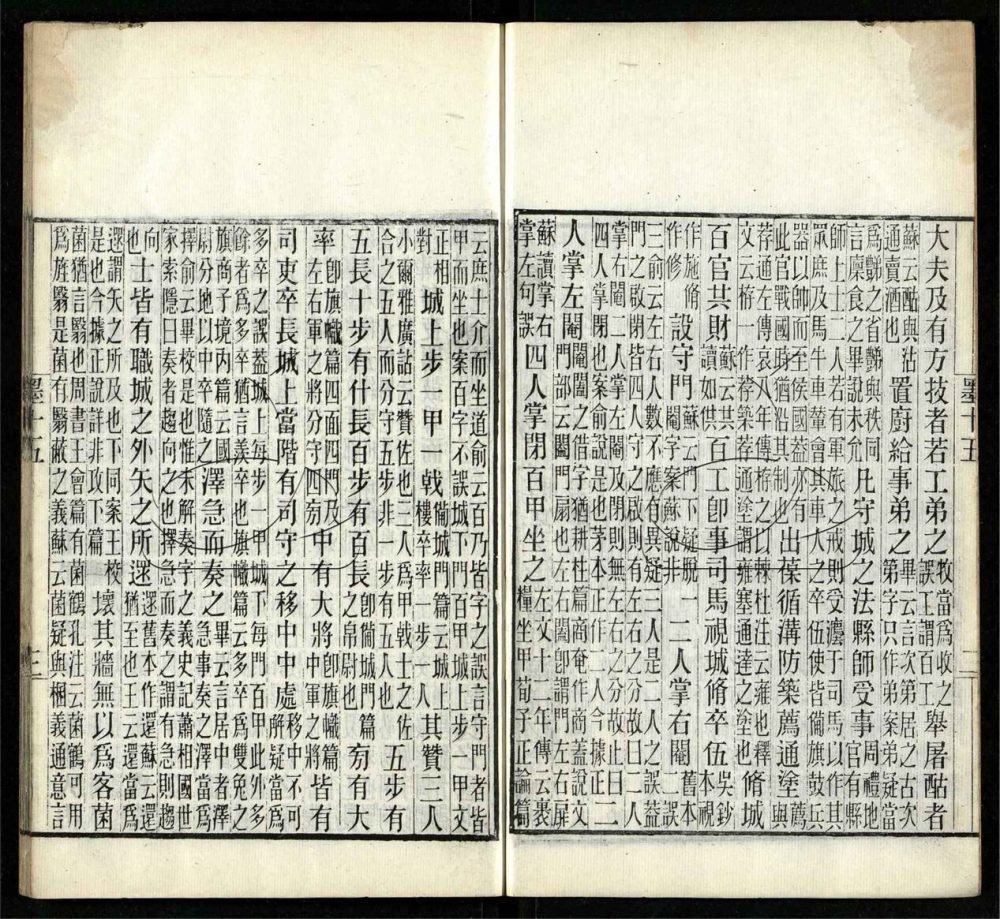 大夫及有方技者若工弟之牧當爲收之誤王謂百工舉屠酤者
蘇云酤與沽通賣酒也置廚給事弟之畢云言次第居之古次第字只作弟案弟疑當
爲豑之省豑與秩同言稟食之畢說未允凡守城之法縣師受事周禮地官有縣
師上士二人若有軍旅之戒則受灋于司馬以作其眾庶及馬牛車輦會其車人之卒伍使皆備旗鼓兵
器以帥而至侯國蓋亦有此官戰國時猶沿其制也出葆循溝防築薦通塗薦與
荐通左傳哀八年傳栫之以棘杜注云雍也釋文云栫一作荐築荐通塗謂雍塞通達之塗也脩城
百官共財蘇云共讀如供百工卽事司馬視城脩卒伍吳鈔本視
作施脩作修設守門蘇云門下疑脫一閹字案蘇說非二人掌右閹舊本二誤
三俞云左右人數不應有異疑三人是二人之誤蓋門之啟閉皆四人守之啟則有左右之分故曰二人
掌右閹二人掌左閹及閉則無左右之分故止曰四人掌閉也案俞說是也茅本正作二人今據正二
人掌左閹閹闔之借字猶耕柱篇商奄作商蓋說文門部云闔門扇也左右闔卽謂門左右扉
蘇讀掌右掌左句誤四人掌閉百甲坐之左文十二年傳云裹糧坐甲荀子正論篇
墨十五
二
云庶士介而坐道俞云百乃皆字之誤言守門者皆甲而坐也案百字不誤城下門百甲城上步一甲文
正相對城上步一甲一戟備城門篇云城上樓卒率一步一人其贊三人
小爾雅廣詁云贊佐也三人爲甲戟士之佐合之五人而分守五步非一步有五人也五步有
五長十步有什長百步有百長卽備城門篇之帛尉也旁有大
率卽旗幟篇四面四門及左右軍之將分守四旁中有大將卽旗幟篇中軍之將皆有
司吏卒長城上當階有司守之移中中處移中不可解疑當爲
多卒之誤蓋城上每步一甲城下每門百甲此外多餘者爲多卒猶言羨卒也旗幟篇云多卒爲雙兔之
旗商子境內篇云國尉分地以中卒隨之澤急而奏之畢云言居中者澤急事奏之澤當爲
擇俞云畢校是也惟未解奏字之義史記蕭相國世家索隱曰奏者趨向之也擇急而奏之謂有急則趨
向也士皆有職城之外矢之所遝遝舊本作還蘇云還猶至也王云還當爲
遝謂矢之所及也下同案王校是也今據正說詳非攻下篇壞其牆無以爲客菌
菌猶言翳也周書王會篇有菌鶴孔注云菌鶴可用爲旌翳是菌有翳蔽之義蘇云菌疑與梱義通意言
墨十五
三